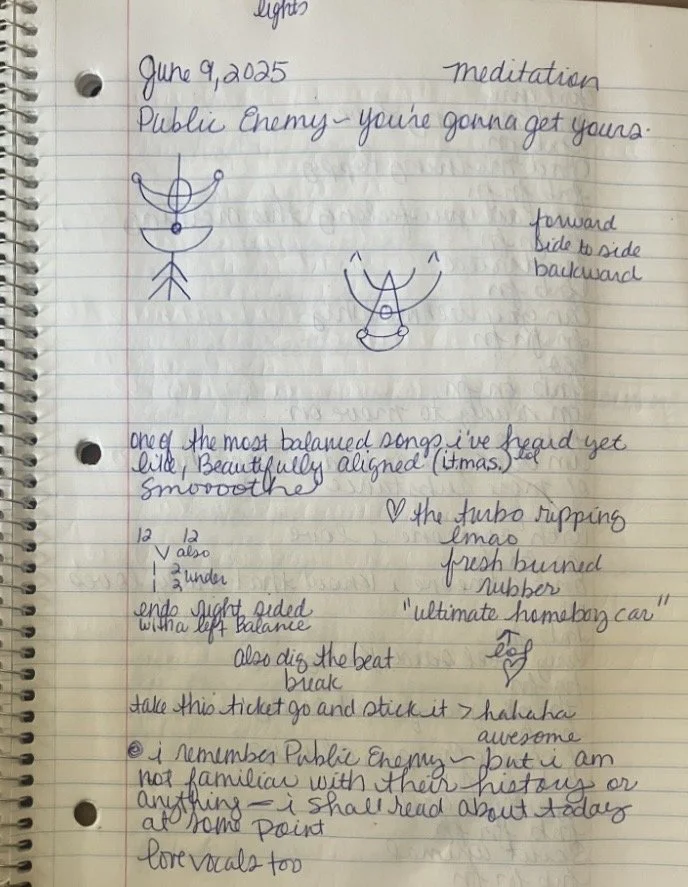 lights
June 9, 2025 meditation
Public Enemy - you're gonna get yours.
forward
side to side
backward
one of the most balanced songs i've heard yet
like, Beautifully aligned (itmas.) lol
Smooooothe
♡ the turbo ripping
lmao
fresh burned
rubber
"ultimate homeboy car"
↑
lol
♡
12 12
V also
1 2 under
1 2
ends right sided
with a left Balance
also dig the beat
break
take this ticket go and stick it > hahaha
awesome
i remember Public Enemy - but i am
not familiar with their history or
anything - i shall read about today
at some point
love vocals too